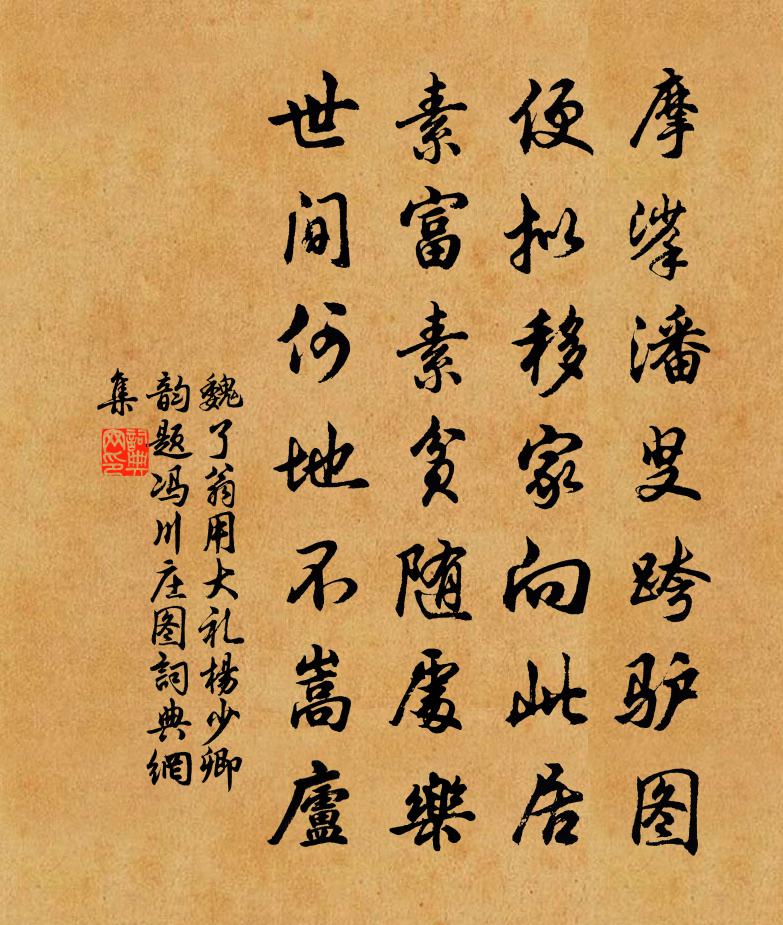 摩挲潘叟跨驴图
便拟移家向此居
素富素贫随處樂
世间何地不嵩廬
魏了翁用大礼楊少卿
韵题冯川庄图詞典網
集
詞典网印